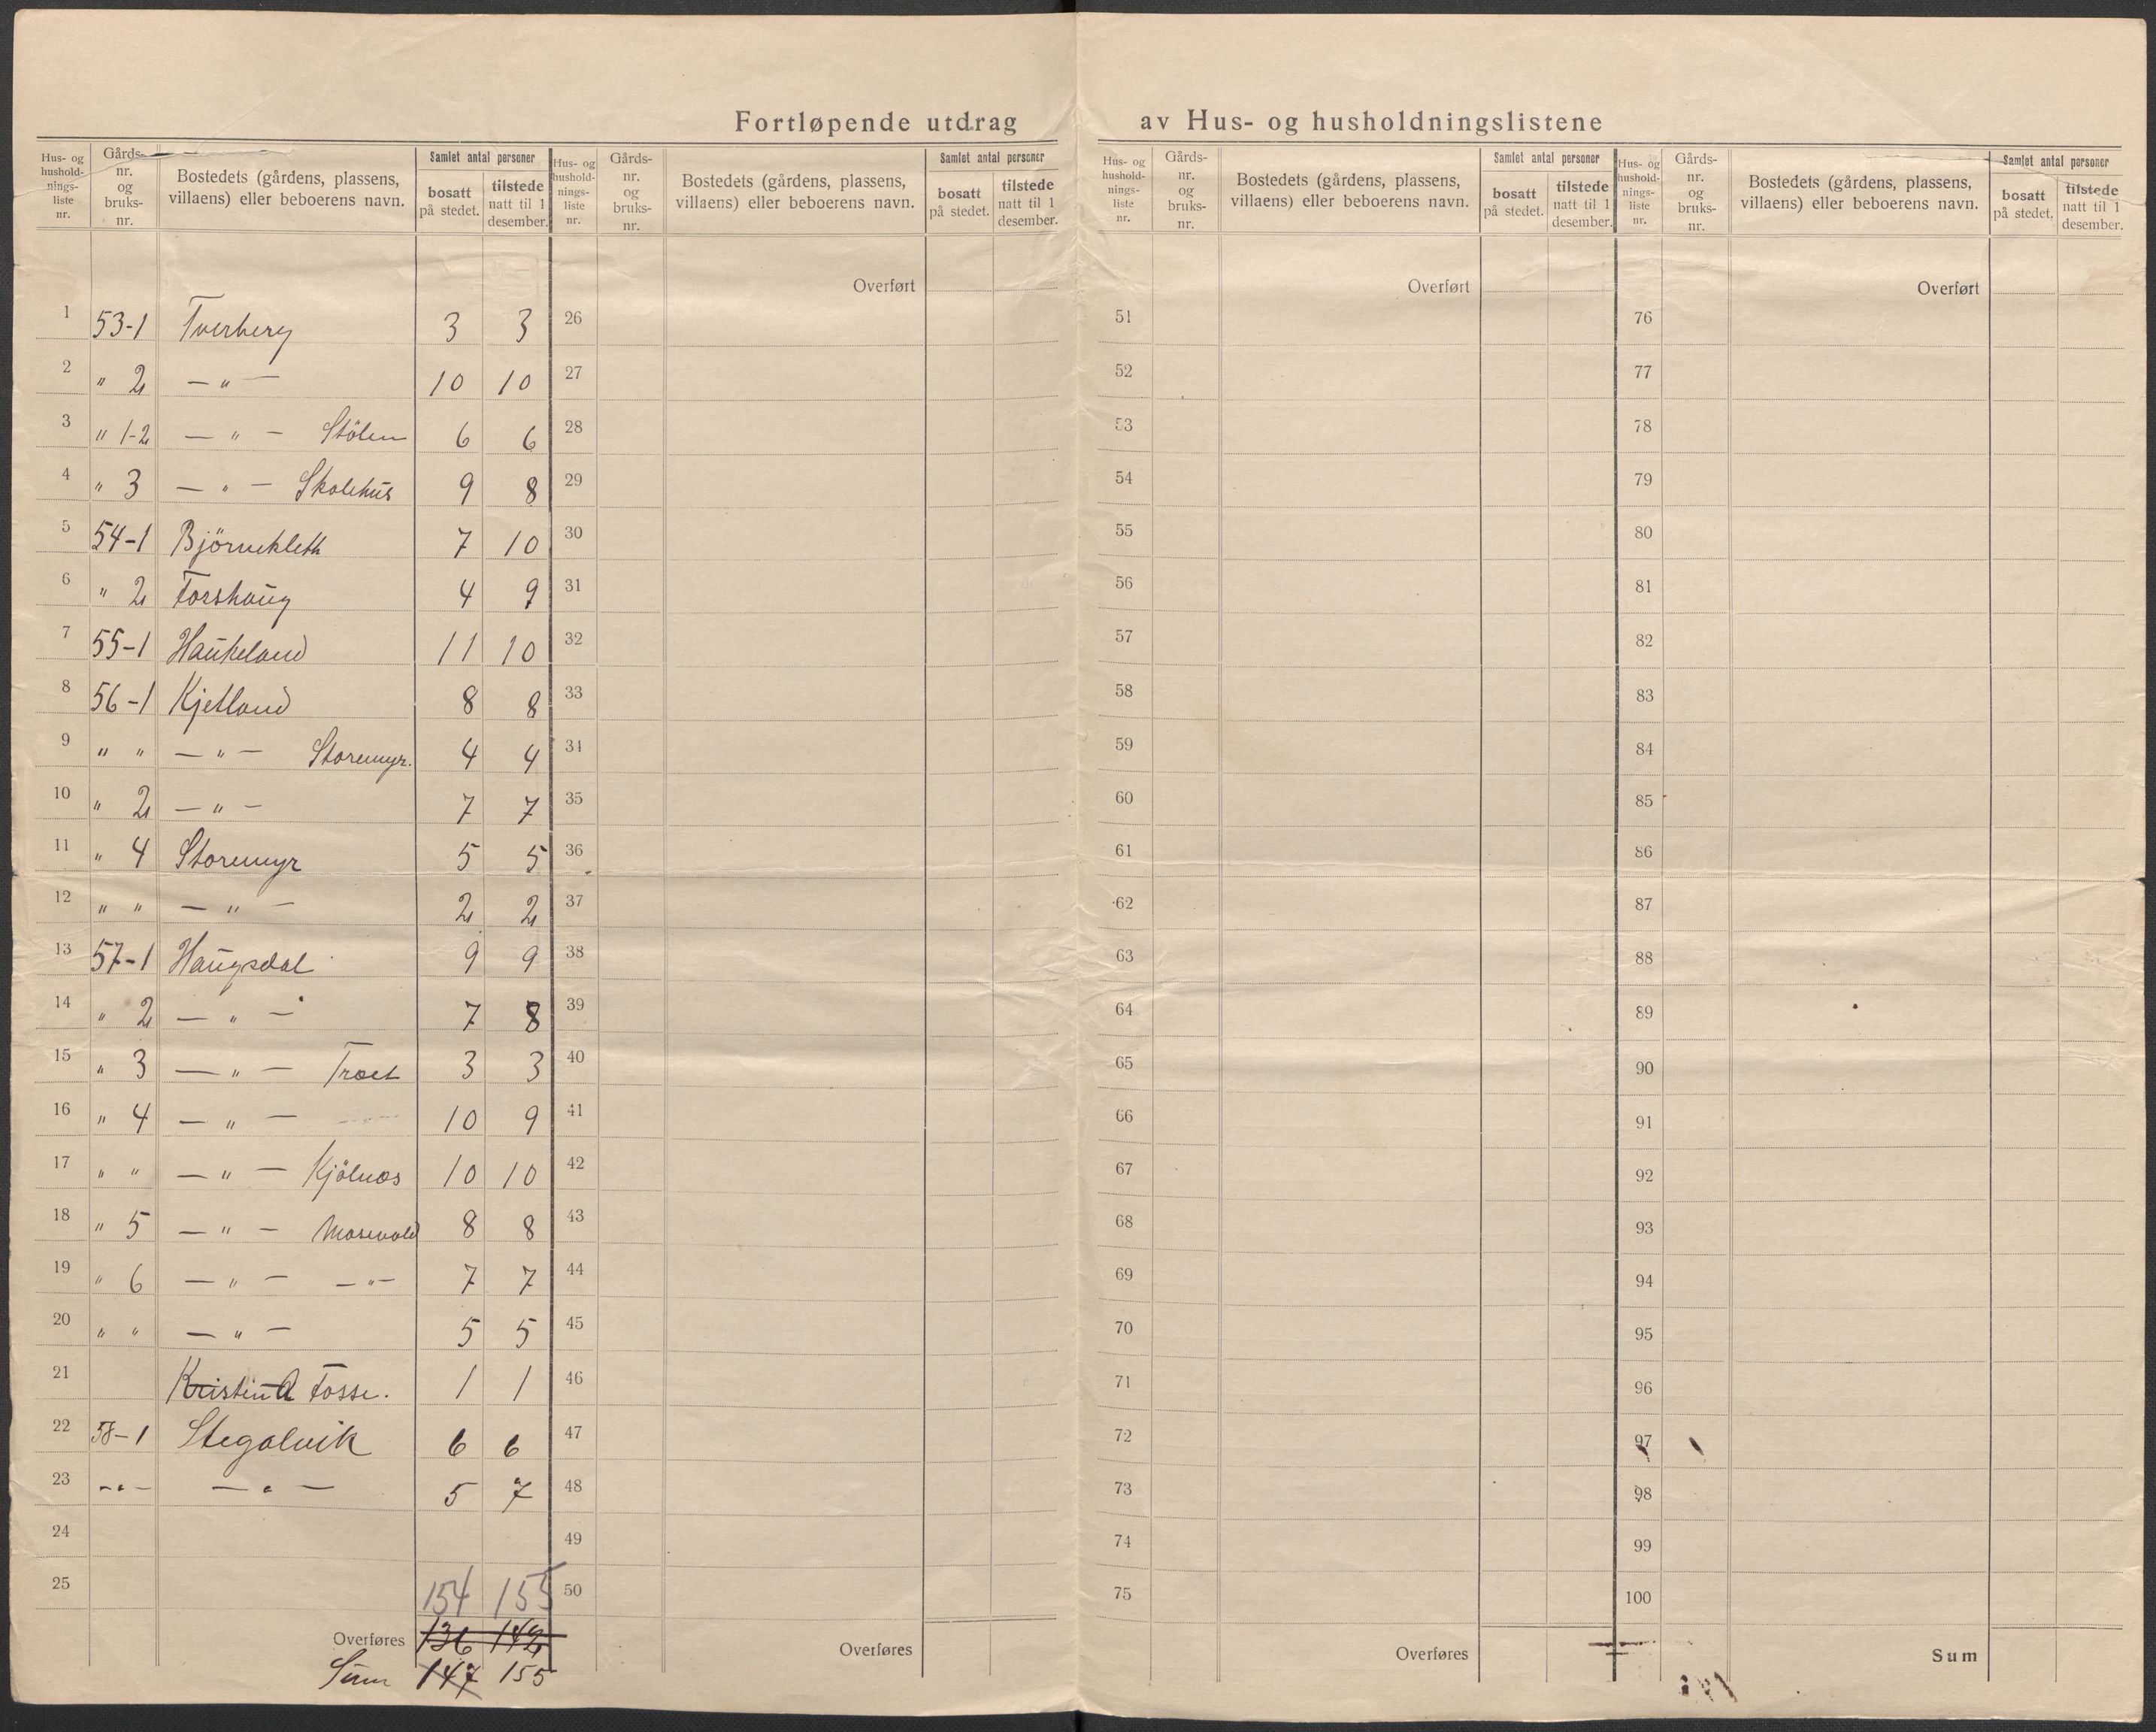 Fortløpende utdrag av Hus- og husholdningslistene
Hus- og hushold-nings-liste nr. | Gårds-nr. og bruks-nr. | Bostedets (gårdens, plassens, villaens) eller beboerens navn. | Samlet antal personer | bosatt på stedet. | tilstede natt til 1 desember.
Hus- og hushold-nings-liste nr. | Gårds-nr. og bruks-nr. | Bostedets (gårdens, plassens, villaens) eller beboerens navn. | Samlet antal personer | bosatt på stedet. | tilstede natt til 1 desember.
Hus- og hushold-nings-liste nr. | Gårds-nr. og bruks-nr. | Bostedets (gårdens, plassens, villaens) eller beboerens navn. | Samlet antal personer | bosatt på stedet. | tilstede natt til 1 desember.
Hus- og hushold-nings-liste nr. | Gårds-nr. og bruks-nr. | Bostedets (gårdens, plassens, villaens) eller beboerens navn. | Samlet antal personer | bosatt på stedet. | tilstede natt til 1 desember.
Overført Overført Overført
1 53-1 Tverberg 3 3 26 51 76
2 " 2 — " — 10 10 27 52 77
3 " 1-2 — " — Stölen 6 6 28 53 78
4 " 3 — " — Skolehus 9 8 29 54 79
5 54-1 Björnekleth 7 10 30 55 80
6 " 2 Forshaug 4 9 31 56 81
7 55-1 Haukeland 11 10 32 57 82
8 56-1 Kjetland 8 8 33 58 83
9 " " — " — Storemyr. 4 4 34 59 84
10 " 2 — " — 7 7 35 60 85
11 " 4 Storemyr 5 5 36 61 86
12 " " — " — 2 2 37 62 87
13 57-1 Haugsdal 9 9 38 63 88
14 " 2 — " — 7 8 39 64 89
15 " 3 — " — Træet 3 3 40 65 90
16 " 4 — " — 10 9 41 66 91
17 " " — " — Kjölnæs 10 10 42 67 92
18 " 5 — " — Mosevold 8 8 43 68 93
19 " 6 — " — — " — 7 7 44 69 94
20 " " — " — 5 5 45 70 95
21 Kristina Fosse. 1 1 46 71 96
22 58-1 Stegalvik 6 6 47 72 97
23 — " — — " — 5 7 48 73 98
24 49 74 99
25 154 155 50 75 100
Overføres 136 142 Overføres Overføres Sum
Sum 147 155